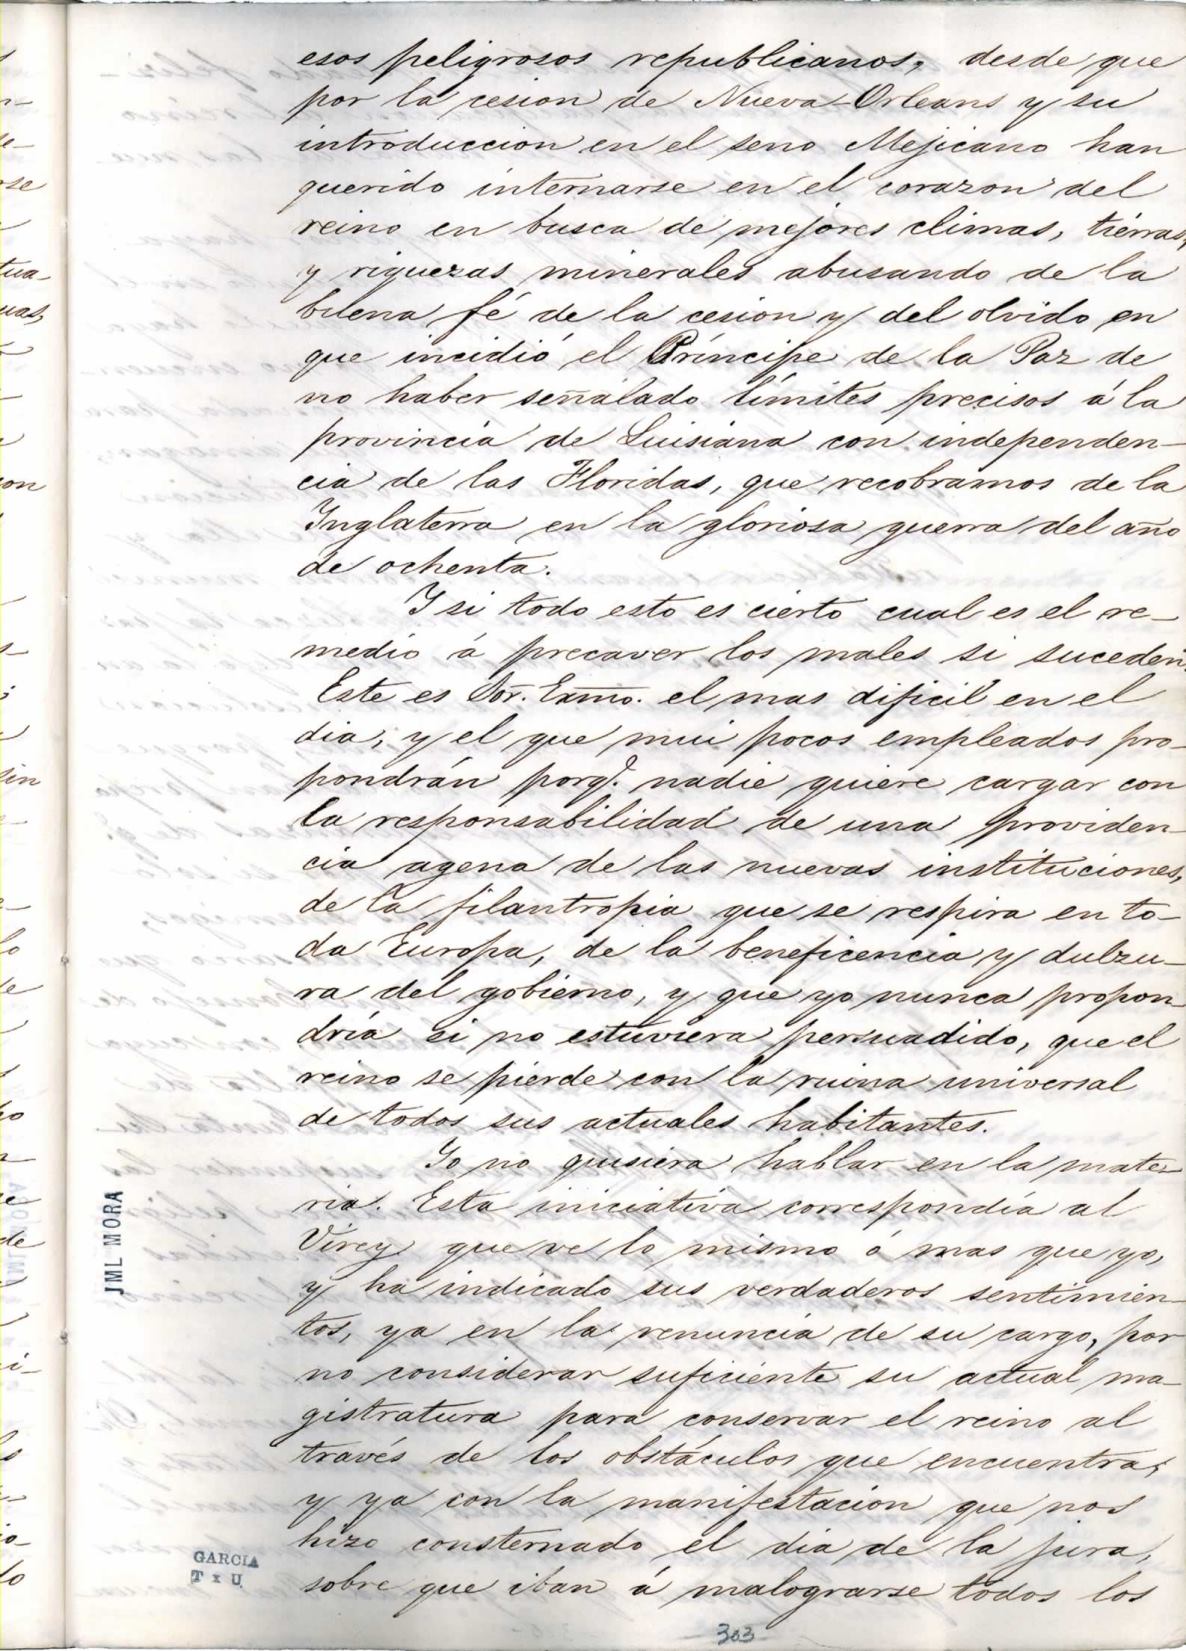 esos peligrosos republicanos, desde que
por la cesion de Nueva-Orleans y su
introduccion en el seno Mejicano han
querido internarse en el corazon del
reino en busca de mejores climas, tierras,
y riquezas minerales abusando de la
buena fé de la cesion y del olvido en
que incidió el Príncipe de la Paz de
no haber señalado límites precisos á la
provincia de Luisiana con independen-
cia de las Floridas, que recobramos de la
Inglaterra en la gloriosa guerra del año
de ochenta.
Y si todo esto es cierto cual es el re-
medio á precaver los males si suceden.
Este es Sor. Exmo. el mas dificil en el
dia, y el que mui pocos empleados pro-
pondrán porq.e nadie quiere cargar con
la responsabilidad de una providen-
cia agena de las nuevas instituciones,
de la filantropia que se respira en to-
da Europa, de la beneficencia y dulzu-
ra del gobierno, y que yo nunca propon
dría si no estuviera persuadido, que el
reino se pierde con la ruina universal
de todos sus actuales habitantes.
Yo no quisiera hablar en la mate-
ria. Esta iniciativa correspondía al
Virey que ve lo mismo ó mas que yo,
y ha indicado sus verdaderos sentimien-
tos, ya en la renuncia de su cargo, por
no considerar suficiente su actual ma-
gistratura para conservar el reino al
través de los obstáculos que encuentra,
y ya con la manifestacion que nos
hizo consternado el dia de la jura,
sobre que iban á malograrse todos los
JML MORA
GARCIA
T x U
303